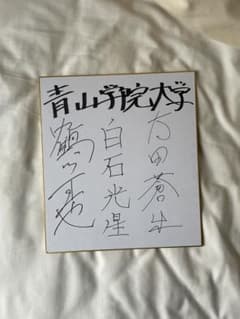 青山学院大学
太田蒼生
白石光星
鶴川正也